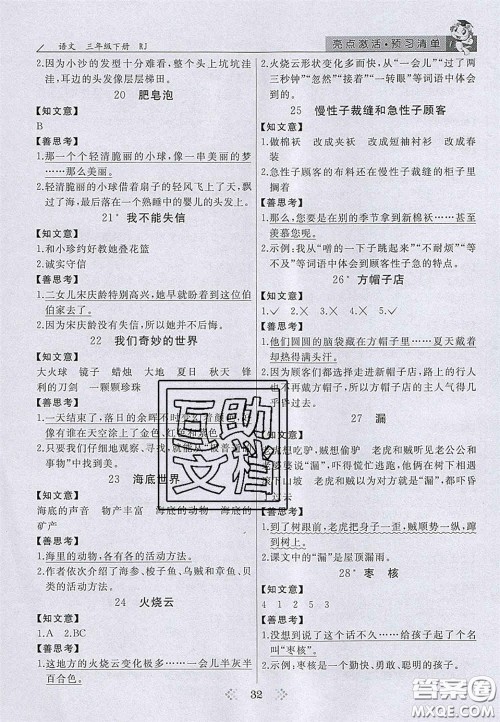 语文 三年级下册 RJ
亮点激活·预习清单
2.因为小沙的发型十分难看,整个头上坑坑洼
洼,耳边的头发像层层梯田。
20 肥皂泡
【知文意】
B
【善思考】
1.那一个个轻清脆丽的小球,像一串美丽的梦
……那么美丽。
2.轻清脆丽的小球借着扇子的轻风飞过大海,飞
过了海。后来落在一个熟睡中的婴儿的头发上。
21* 我不能失信
【知文意】
1.和小珍约好教她叠花篮
2.诚实守信
【善思考】
1.二女儿宋庆龄特别高兴,她早就盼着到这位伯
伯家去了。
2.因为宋庆龄没有失信,所以她不后悔。
22 我们奇妙的世界
【知文意】
大火球 镜子 蜡烛 大地 夏日 秋天 锋
利的刀剑 一颗颗珍珠
【善思考】
1.一天结束了,落日的余晖不时变幻着颜色。好
像有谁在天空涂上了金色、红色和紫色。
2.只要我们仔细地观察、寻找,就能从“极普通的
事物”中找到美。
23 海底世界
【知文意】
海底的声音 物产丰富 海底的动物 海底的
矿产
【善思考】
1.海里的动物,各有各的活动方法。
2.作者依次介绍了海参、梭子鱼、乌贼和章鱼、贝
类的活动方法。
24 火烧云
【知文意】
1.A 2.BC
【善思考】
1.这地方的火烧云变化极多,一会儿半灰半
百合色。
2.火烧云形状变化多而快,从“一会儿”“过了两
三秒钟”“忽然”“接着”“一转眼”等词语中体
会到的。
25 慢性子裁缝和急性子顾客
【知文意】
1.做棉袄 改成夹袄 改成短袖衬衫 改成春装
2.急性子顾客的布料还在慢性子裁缝的柜子里
搁着
【善思考】
1.那么,您要是在别的季节拿到新棉袄……甚至
羡慕您呢。
2.示例:我从“噌的一下子跳起来”“不耐烦”“等
不及”等词语中体会到顾客性子急的特点。
26* 方帽子店
【知文意】
1.✓ 2.✓ 3.✕ 4.✓ 5.✕
【善思考】
1.他们圆圆的脑袋藏在方帽子里……夏天戴着
却热得满头汗。
2.因为顾客们都想选择走进新开的店里,路上的
行人也不想买方帽子,所以方帽子店的主人气得几
乎昏过去了。
27 漏
【知文意】
1.老虎想吃驴,贼想偷驴 老虎和贼听见老公公和
老婆婆说“漏”,吓得慌忙逃跑。 老虎和贼从树下
滚下山坡 老虎和贼以为对方就是“漏”,都被
吓昏了过去。
【善思考】
1.到了树跟前,老虎把身子一歪,贼顺势一纵,蹿
到树上。
2.课文中的“漏”是屋顶漏雨。
28* 枣核
【知文意】
4 1 2 5 3
【善思考】
1.没想到说了这个话不久……给孩子起了个名
字叫“枣核”。
2.示例:枣核是一个勤快、勇敢、聪明的孩子。
32
互助
文档
答案圈
MXQE.COM